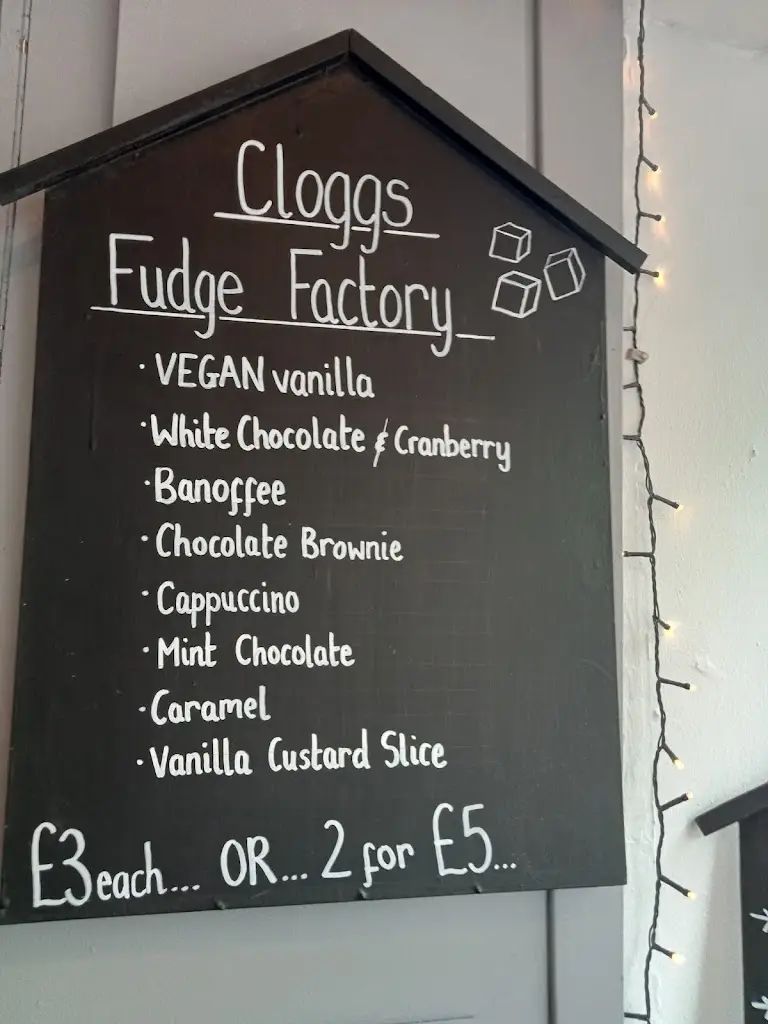 Cloggs
Fudge Factory
· VEGAN vanilla
· White Chocolate & Cranberry
· Banoffee
· Chocolate Brownie
· Cappuccino
· Mint Chocolate
· Caramel
· Vanilla Custard Slice
£3 each... OR... 2 for £5...